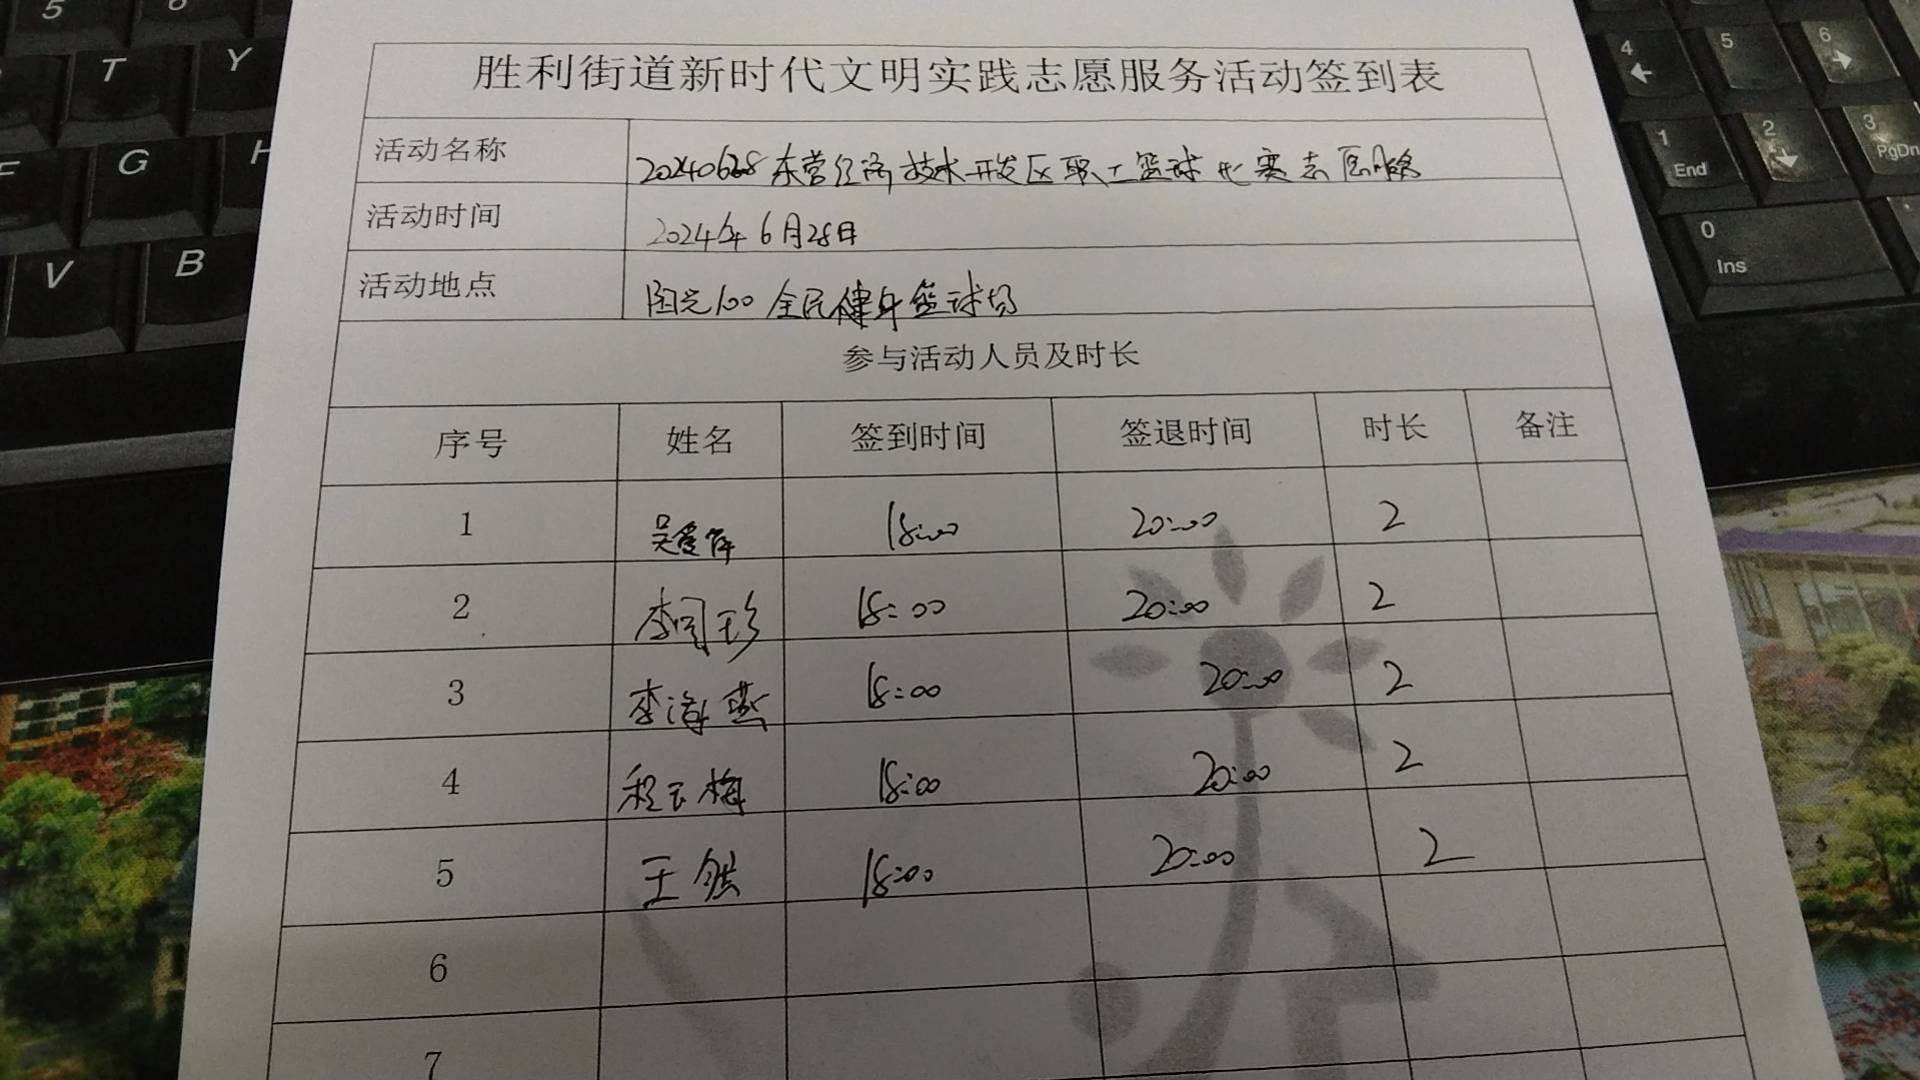 胜利街道新时代文明实践志愿服务活动签到表
活动名称 20240628东营经济技术开发区职工篮球比赛志愿服务
活动时间 2024年6月28日
活动地点 阳光100全民健身篮球场
参与活动人员及时长
序号 姓名 签到时间 签退时间 时长 备注
1 18:00 20:00 2
2 18:00 20:00 2
3 李海燕 18:00 20:00 2
4 程玉梅 18:00 20:00 2
5 王 18:00 20:00 2
6
7
5 6
T Y
G H
V B
4 5 6
1 End 2 3 PgDn
0 Ins